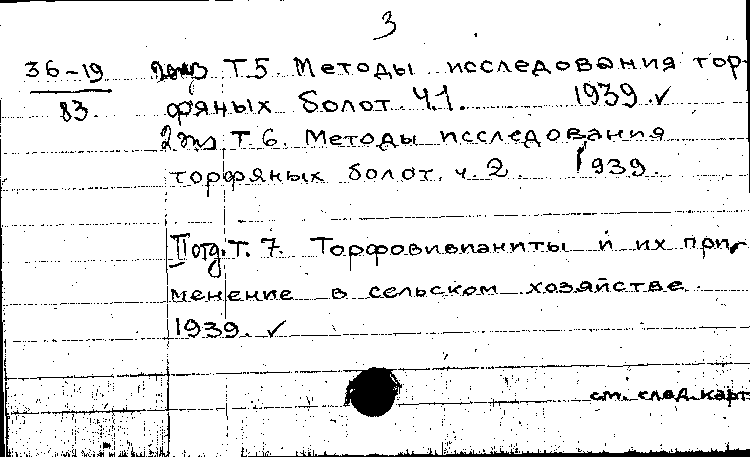 3
36-19
83.
2 экз Т.5. Методы исследования тор-
фяных болот. Ч.1. 1939. ✓
2 экз Т.6. Методы исследования
торфяных болот. ч.2. 1939.
II отд. Т. 7. Торфовивианиты и их при-
менение в сельском хозяйстве.
1939. ✓
см. след. карт